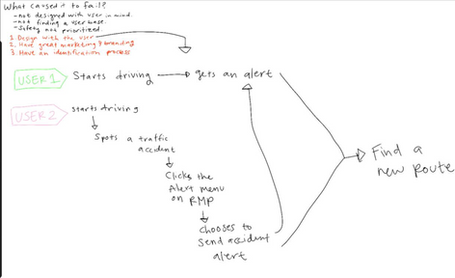 What caused it to fail?
-not designed with user in mind.
-not finding a user base.
-Safety not prioritized
1. Design with the user
2. Have great marketing & branding
3. Have an identification process
USER 1
Starts driving
gets an alert
USER 2
starts driving
Spots a traffic
accident
Clicks the
Alert menu
on RMP
Chooses to
Send accident
alert
Find a
new Route